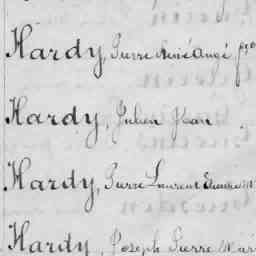 Hardy, Pierre René Ange
Hardy, Julien Jean
Hardy, Pierre Laurent
Hardy, Joseph Pierre Mar